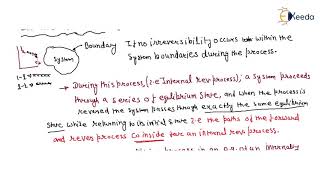 Ekeeda
Boundary
System
If no irreversibility occurs within the
System boundaries during the process.
During this process, (i.e Internal rev process); a System proceeds
through a series of eqlibrium State, and when the process is
reversed the System passes through exactly the same equilibrium
State while returning to its initial State i.e the paths of the forward
and revers process Coinside for an internal rev. process.